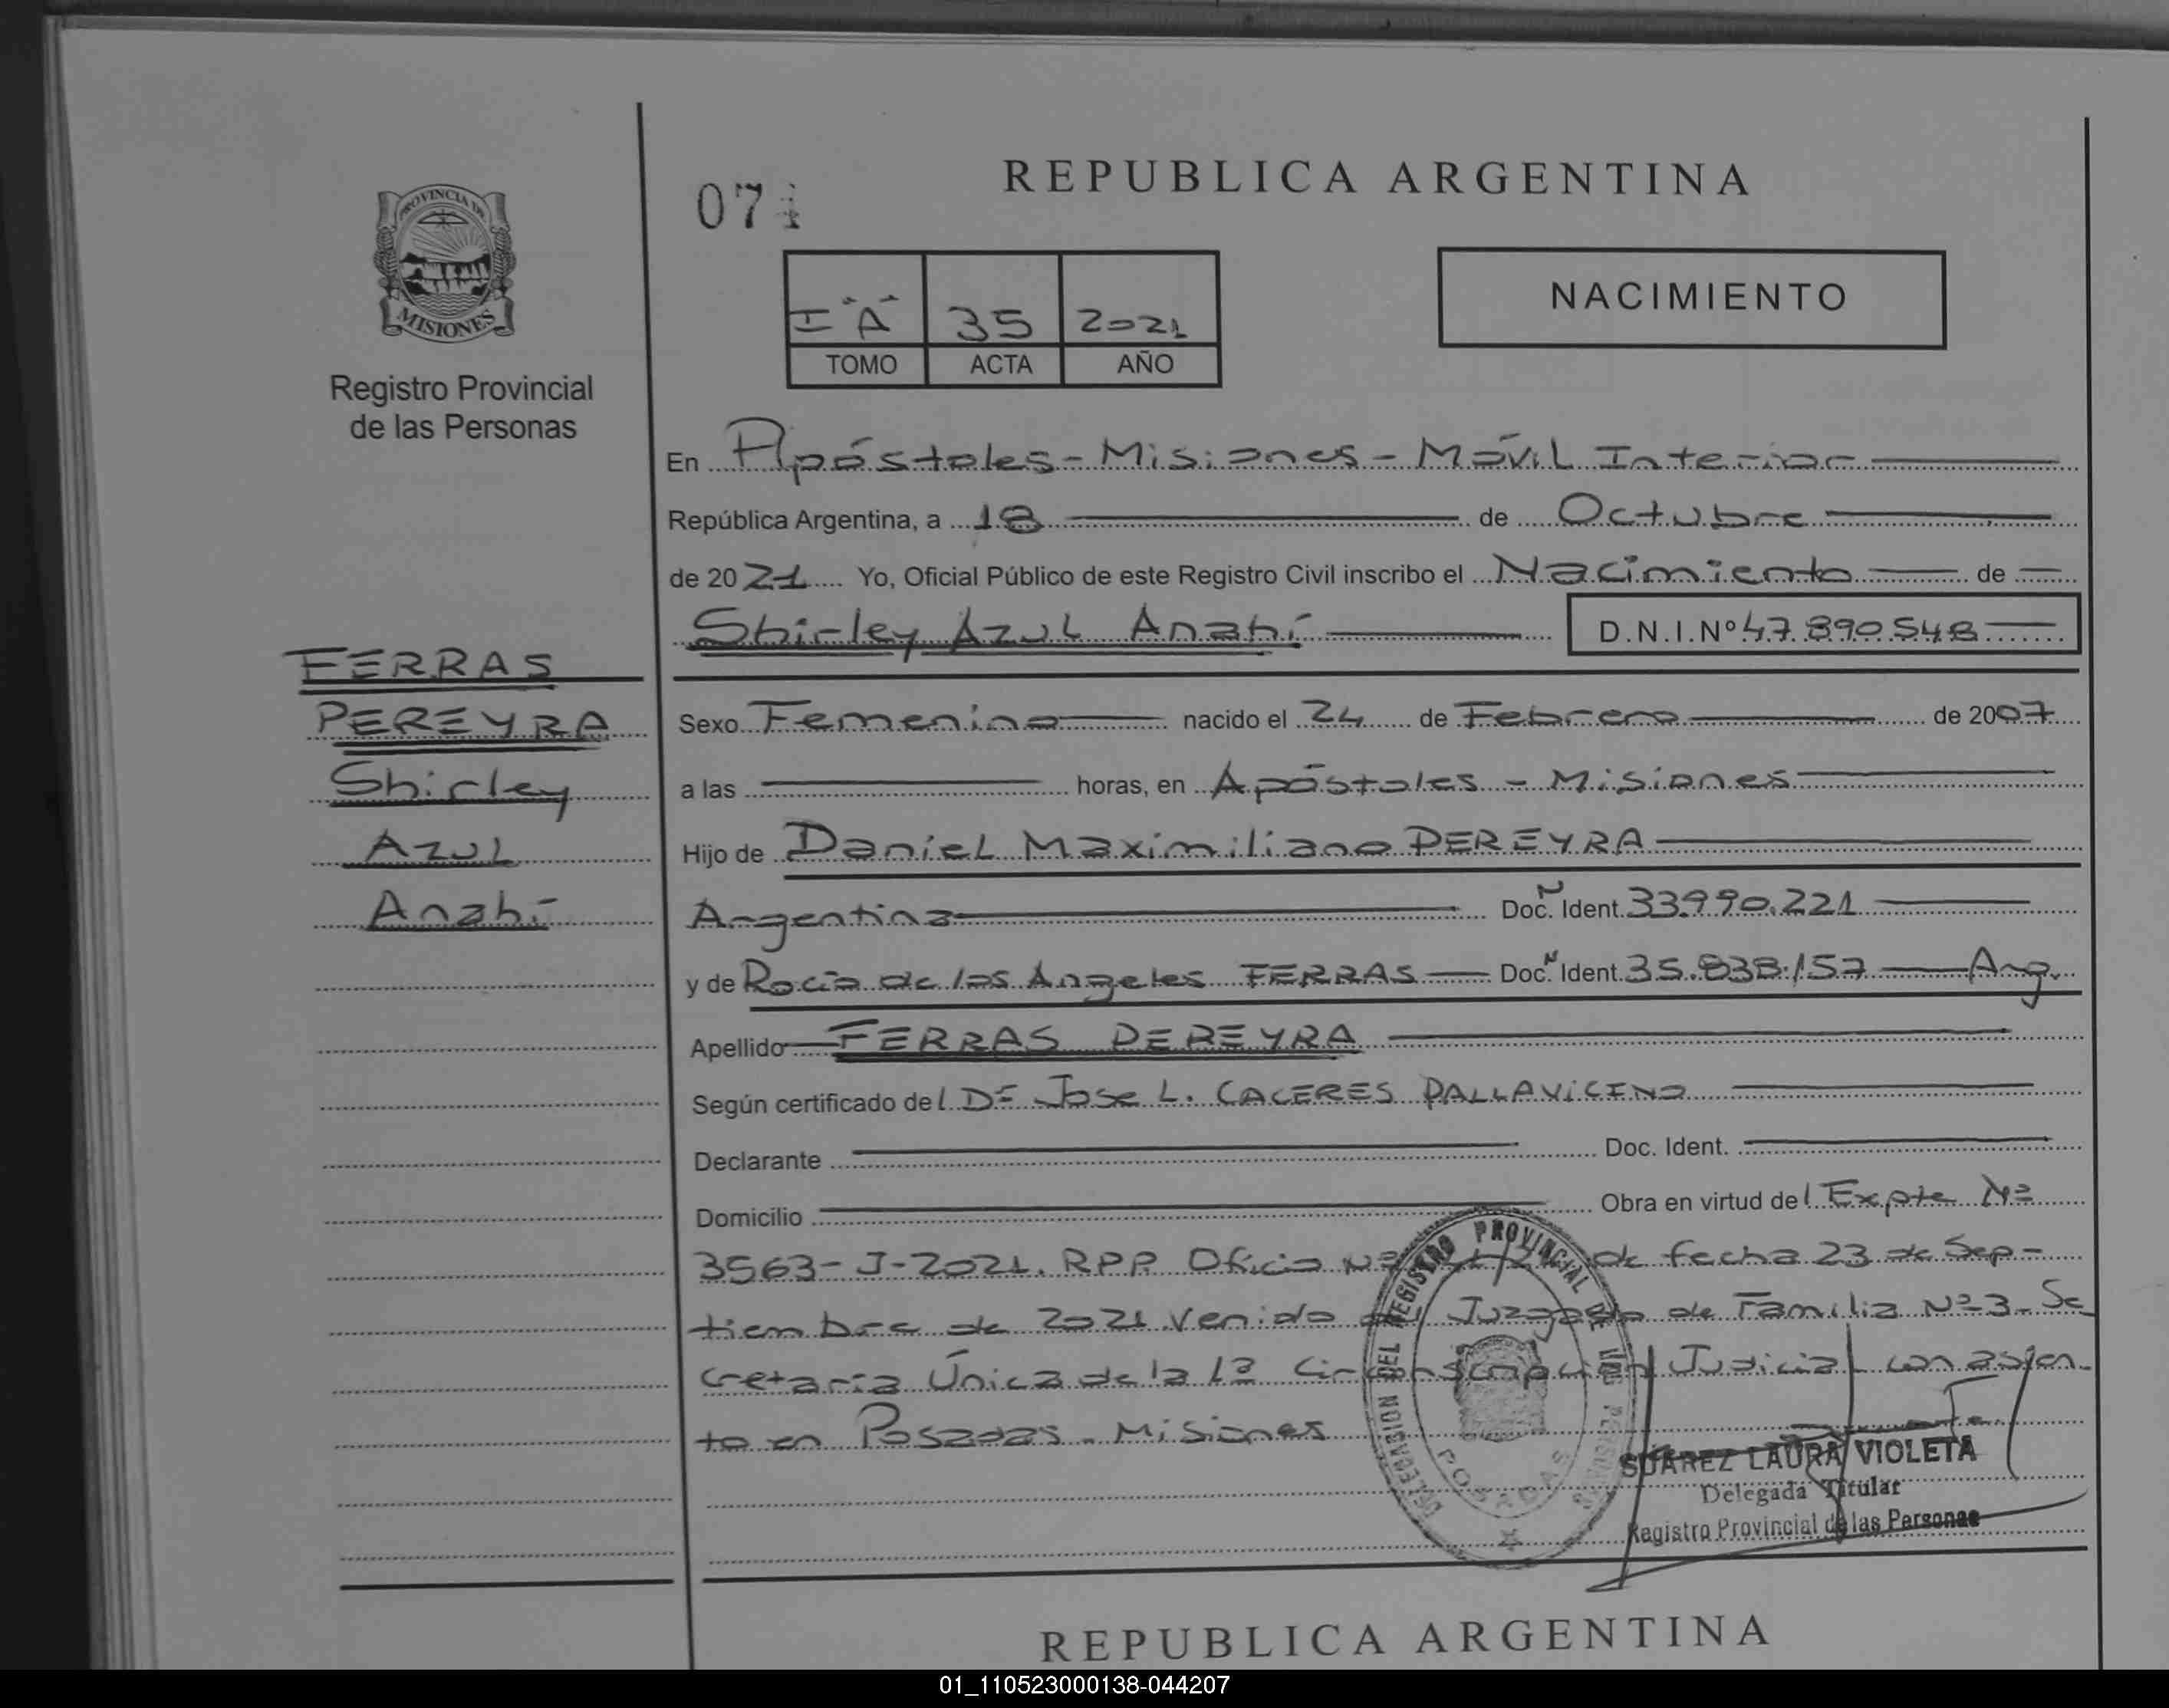 REPUBLICA ARGENTINA
PROVINCIA DE
MISIONES
Registro Provincial
de las Personas
07
I "A" 35 2021
TOMO ACTA AÑO
NACIMIENTO
En Apóstoles - Misiones - Móvil Interior
República Argentina, a 18 de Octubre
de 2021 Yo, Oficial Público de este Registro Civil inscribo el Nacimiento de
Shirley Azul Anahí D.N.I.Nº 47.890.548
FERRAS
PEREYRA
Shirley
Azul
Anahí
Sexo Femenino nacido el 24 de Febrero de 2007
a las horas, en Apóstoles - Misiones
Hijo de Daniel Maximiliano PEREYRA
Argentina Doc. N Ident. 33.990.221
y de Rocío de los Angeles FERRAS Doc. N Ident. 35.838.157 Arg.
Apellido FERRAS PEREYRA
Según certificado del Dr Jose L. CACERES PALLAVICINO
Declarante Doc. Ident.
Domicilio Obra en virtud del Expte Nº
3563-J-2021. RPP. Oficio Nº de fecha 23 de Sep-
tiembre de 2021 venido Juzgado de Familia Nº 3 - Se
cretaría Única de la 1ª Circunscripción Judicial con asien-
to en Posadas - Misiones
DELEGACION DEL REGISTRO PROVINCIAL DE LAS PERSONAS
POSADAS
SUAREZ LAURA VIOLETA
Delegada Titular
Registro Provincial de las Personas
REPUBLICA ARGENTINA
01_110523000138-044207